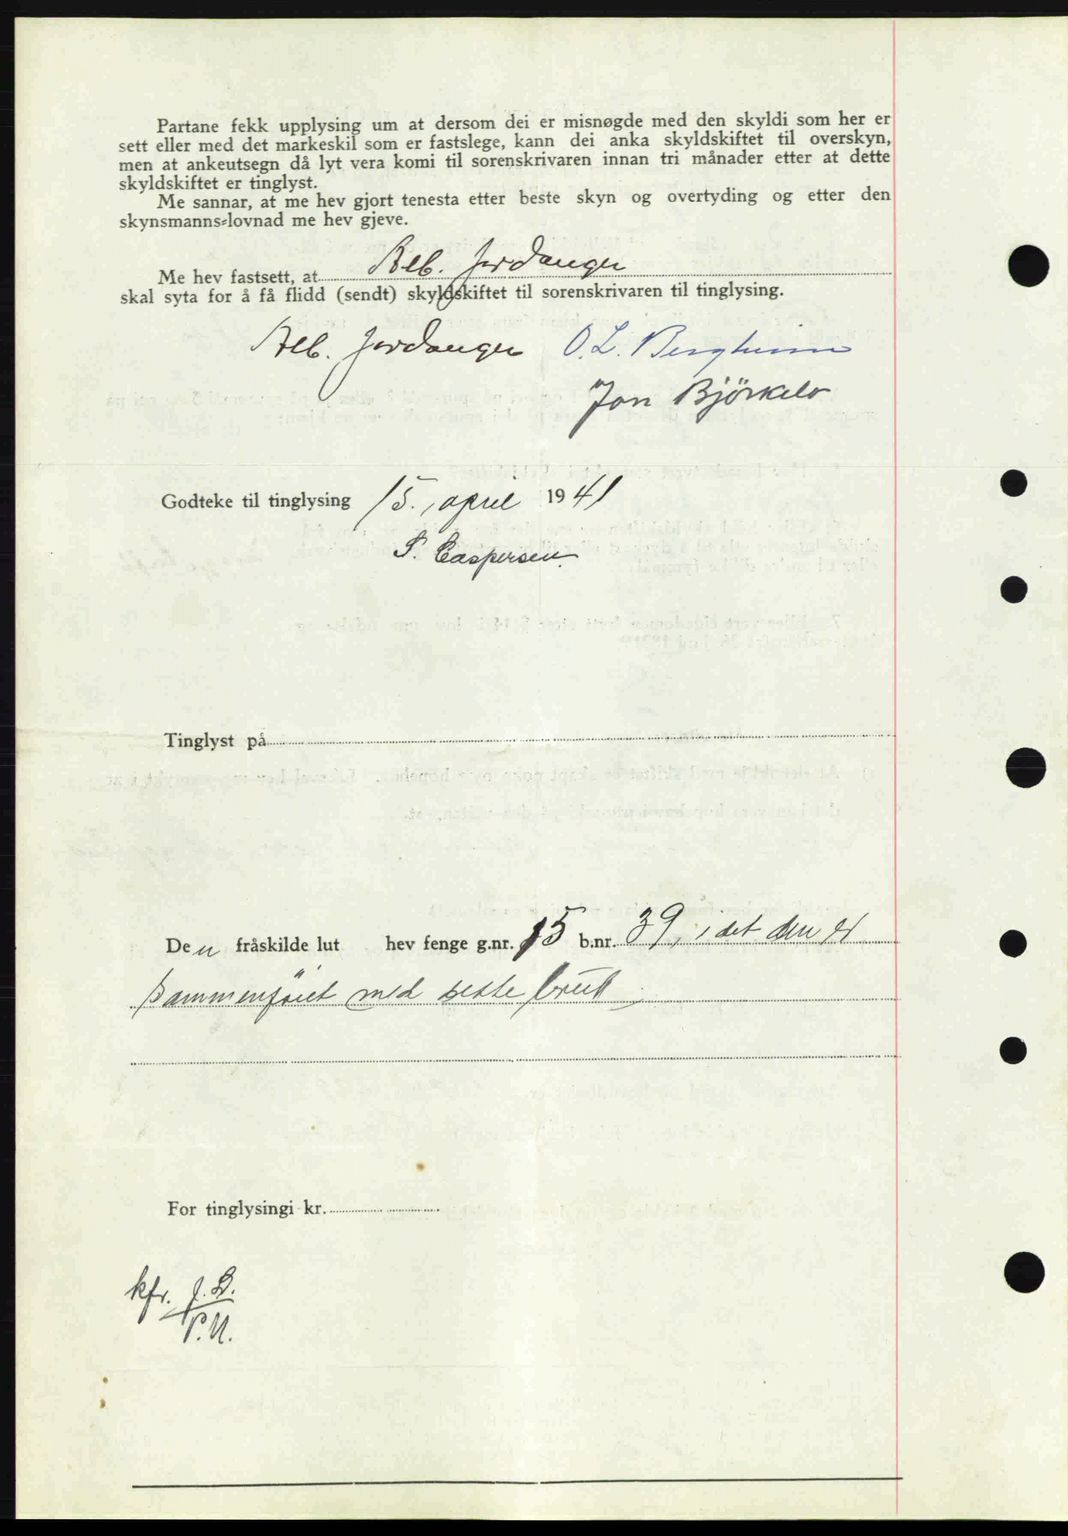 Partane fekk upplysing um at dersom dei er misnøgde med den skyldi som her er
sett eller med det markeskil som er fastslege, kann dei anka skyldskiftet til overskyn,
men at ankeutsegn då lyt vera komi til sorenskrivaren innan tri månader etter at dette
skyldskiftet er tinglyst.
Me sannar, at me hev gjort tenesta etter beste skyn og overtyding og etter den
skynsmanns-lovnad me hev gjeve.
Me hev fastsett, at Alb. Jordanger
skal syta for å få flidd (sendt) skyldskiftet til sorenskrivaren til tinglysing.
Alb. Jordanger O. L. Bergheim
Jon Björkelo
Godteke til tinglysing 15. april 1941
S. Caspersen.
Tinglyst på
Den fråskilde lut hev fenge g.nr. 15 b.nr. 39, i det den er
sammenföiet med dette bruk
For tinglysingi kr.
kfr. J.B.
P.N.